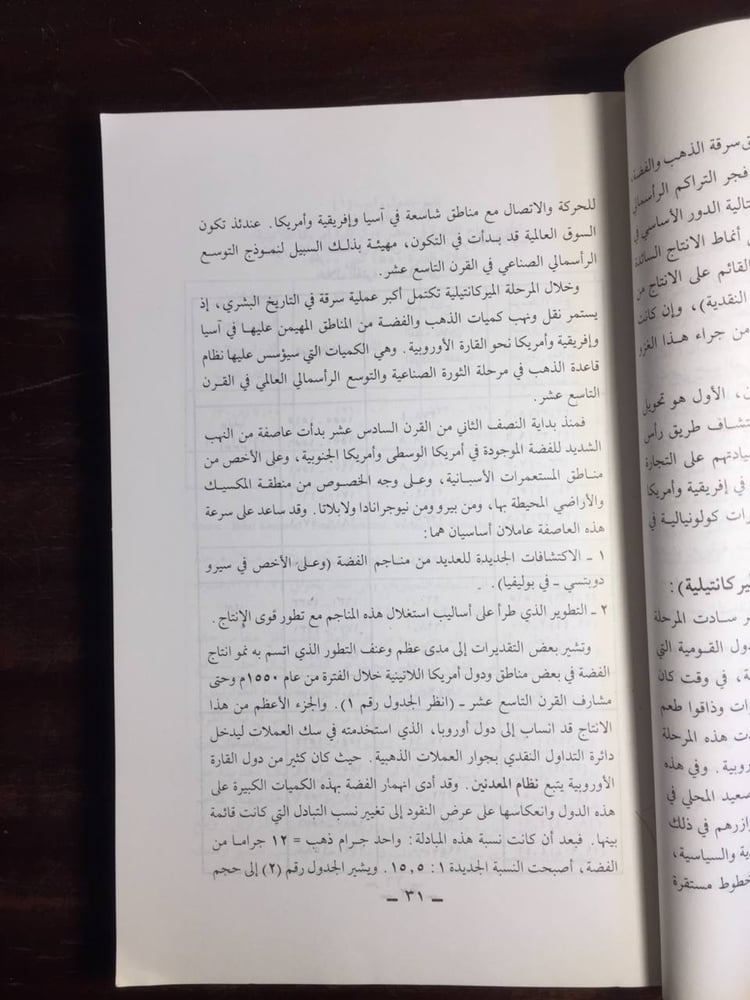 للحركة والاتصال مع مناطق شاسعة في آسيا وإفريقية وأمريكا. عندئذ تكون
السوق العالمية قد بدأت في التكون، مهيئة بذلك السبيل لنموذج التوسع
الرأسمالي الصناعي في القرن التاسع عشر.
وخلال المرحلة الميركانتيلية تكتمل أكبر عملية سرقة في التاريخ البشري، إذ
يستمر نقل ونهب كميات الذهب والفضة من المناطق المهيمن عليها في آسيا
وإفريقية وأمريكا نحو القارة الأوروبية. وهي الكميات التي سيؤسس عليها نظام
قاعدة الذهب في مرحلة الثورة الصناعية والتوسع الرأسمالي العالمي في القرن
التاسع عشر.
فمنذ بداية النصف الثاني من القرن السادس عشر بدأت عاصفة من النهب
الشديد للفضة الموجودة في أمريكا الوسطى وأمريكا الجنوبية، وعلى الأخص من
مناطق المستعمرات الأسبانية، وعلى وجه الخصوص من منطقة المكسيك
والأراضي المحيطة بها، ومن بيرو ومن نيوجرانادا ولابلاتا. وقد ساعد على سرعة
هذه العاصفة عاملان أساسيان هما:
١ ـ الاكتشافات الجديدة للعديد من مناجم الفضة (وعلى الأخص في سيرو
دوبتسي ـ في بوليفيا).
٢ ـ التطوير الذي طرأ على أساليب استغلال هذه المناجم مع تطور قوى الإنتاج.
وتشير بعض التقديرات إلى مدى عظم وعنف التطور الذي اتسم به نمو انتاج
الفضة في بعض مناطق ودول أمريكا اللاتينية خلال الفترة من عام ١٥٥٠م وحتى
مشارف القرن التاسع عشر ـ (انظر الجدول رقم ١). والجزء الأعظم من هذا
الانتاج قد انساب إلى دول أوروبا، الذي استخدمته في سك العملات ليدخل
دائرة التداول النقدي بجوار العملات الذهبية. حيث كان كثير من دول القارة
الأوروبية يتبع نظام المعدنين. وقد أدى انهمار الفضة بهذه الكميات الكبيرة على
هذه الدول وانعكاسها على عرض النقود إلى تغيير نسب التبادل التي كانت قائمة
بينها. فبعد أن كانت نسبة هذه المبادلة: واحد جرام ذهب = ١٢ جراما من
الفضة، أصبحت النسبة الجديدة ١: ١٥,٥. ويشير الجدول رقم (٢) إلى حجم
ـ ٣١ ـ
سرقة الذهب والفضة،
فجر التراكم الرأسمالي
تالية الدور الأساسي في
أنماط الانتاج السائدة
القائم على الانتاج من
النقدية)، وإن كانت
من جراء هذا الغزو
، الأول هو تحويل
تشاف طريق رأس
يادتهم على التجارة
في إفريقية وأمريكا
رات كولونيالية في
يركانتيلية):
ر سادت المرحلة
دول القومية التي
ة، في وقت كان
رات وذاقوا طعم
ت هذه المرحلة
روبية. وفي هذه
صعيد المحلي في
ازرهم في ذلك
ية والسياسية،
خطوط مستقرة